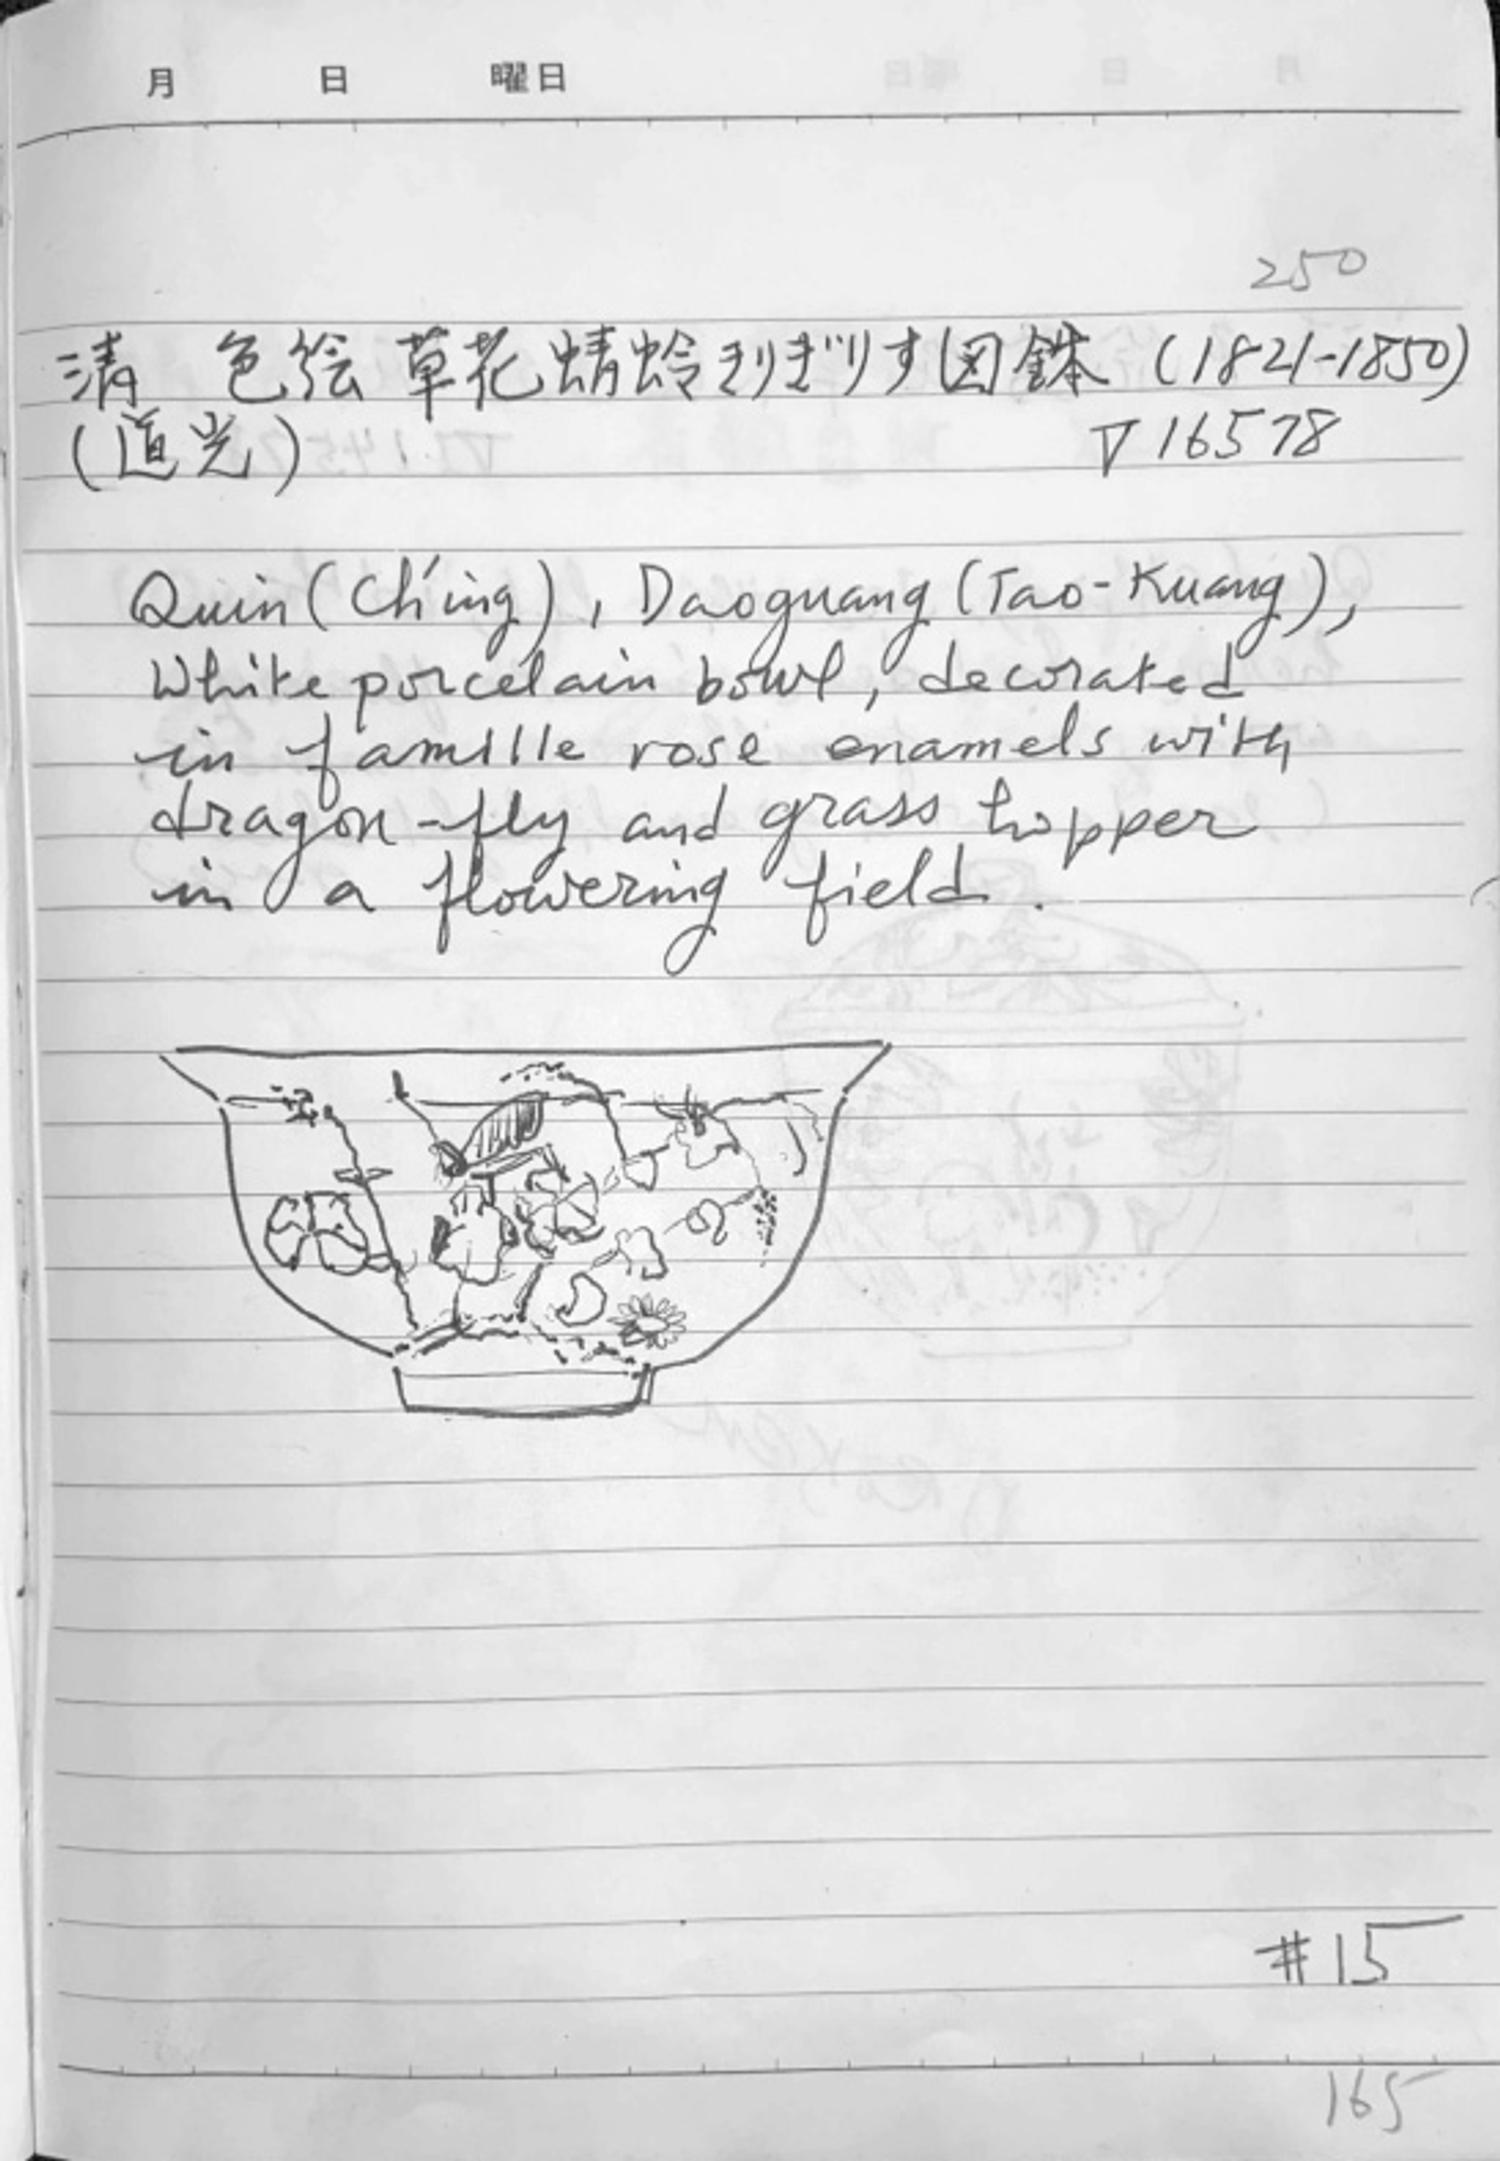 月 日 曜日
250
清 色絵 草花蜻蛉きりぎりす図鉢 (1821-1850)
(道光) ▽16578
Quin (Ch'ing), Daoguang (Tao-Kuang),
White porcelain bowl, decorated
in famille rose enamels with
dragon-fly and grass hopper
in a flowering field.
#15
165